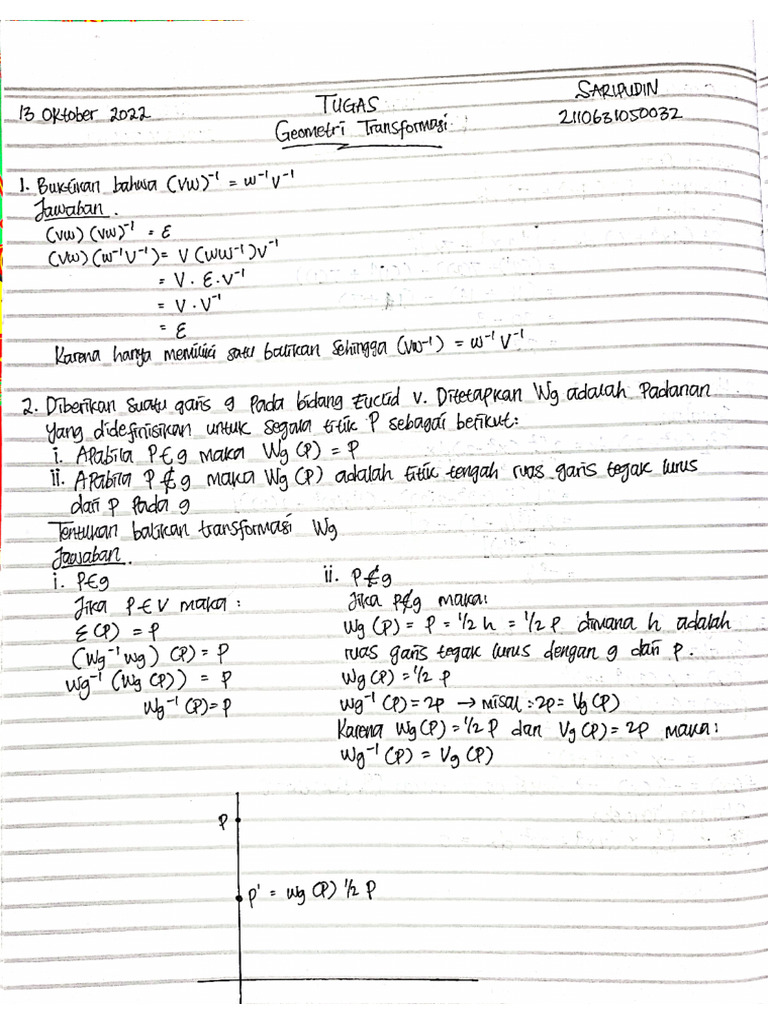 13 Oktober 2022
TUGAS
Geometri Transformasi
SARIPUDIN
2110631050032
1. Buktikan bahwa (VW)⁻¹ = W⁻¹V⁻¹
Jawaban.
(VW) (VW)⁻¹ = ε
(VW) (W⁻¹V⁻¹) = V (WW⁻¹) V⁻¹
= V . ε . V⁻¹
= V . V⁻¹
= ε
Karena hanya memiliki satu balikan sehingga (VW⁻¹) = W⁻¹ V⁻¹
2. Diberikan suatu garis g pada bidang Euclid V. Ditetapkan Wg adalah Padanan
yang didefinisikan untuk segala titik P sebagai berikut:
i. Apabila P ∈ g maka Wg (P) = P
ii. Apabila P ∉ g maka Wg (P) adalah titik tengah ruas garis tegak lurus
dari P pada g
Tentukan balikan transformasi Wg
Jawaban.
i. P∈g
Jika P ∈ V maka :
ε (P) = P
(Wg⁻¹ Wg) (P) = P
Wg⁻¹ (Wg (P)) = P
Wg⁻¹ (P) = P
ii. P ∉ g
Jika P∉g maka:
Wg (P) = P = 1/2 h = 1/2 P dimana h adalah
ruas garis tegak lurus dengan g dari P.
Wg (P) = 1/2 P
Wg⁻¹ (P) = 2P → misal : 2P = Vg (P)
Karena Wg (P) = 1/2 P dan Vg (P) = 2P maka:
Wg⁻¹ (P) = Vg (P)
P
P' = Wg (P) 1/2 P